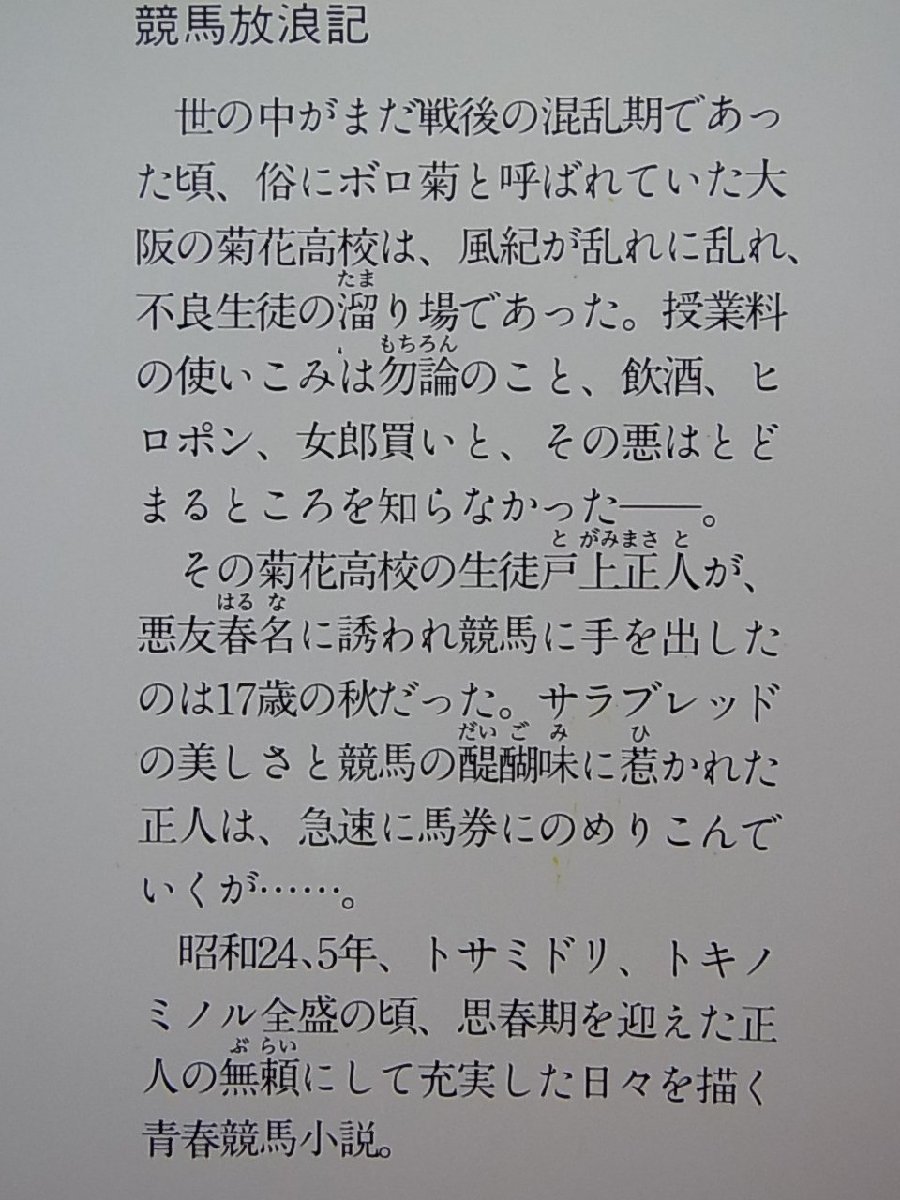 競馬放浪記
世の中がまだ戦後の混乱期であっ
た頃、俗にボロ菊と呼ばれていた大
阪の菊花高校は、風紀が乱れに乱れ、
たま
不良生徒の溜り場であった。授業料
もちろん
の使いこみは勿論のこと、飲酒、ヒ
ロポン、女郎買いと、その悪はとど
まるところを知らなかった――。
とがみまさと
その菊花高校の生徒戸上正人が、
はるな
悪友春名に誘われ競馬に手を出した
のは17歳の秋だった。サラブレッド
だいごみ ひ
の美しさと競馬の醍醐味に惹かれた
正人は、急速に馬券にのめりこんで
いくが……。
昭和24、5年、トサミドリ、トキノ
ミノル全盛の頃、思春期を迎えた正
ぶらい
人の無頼にして充実した日々を描く
青春競馬小説。